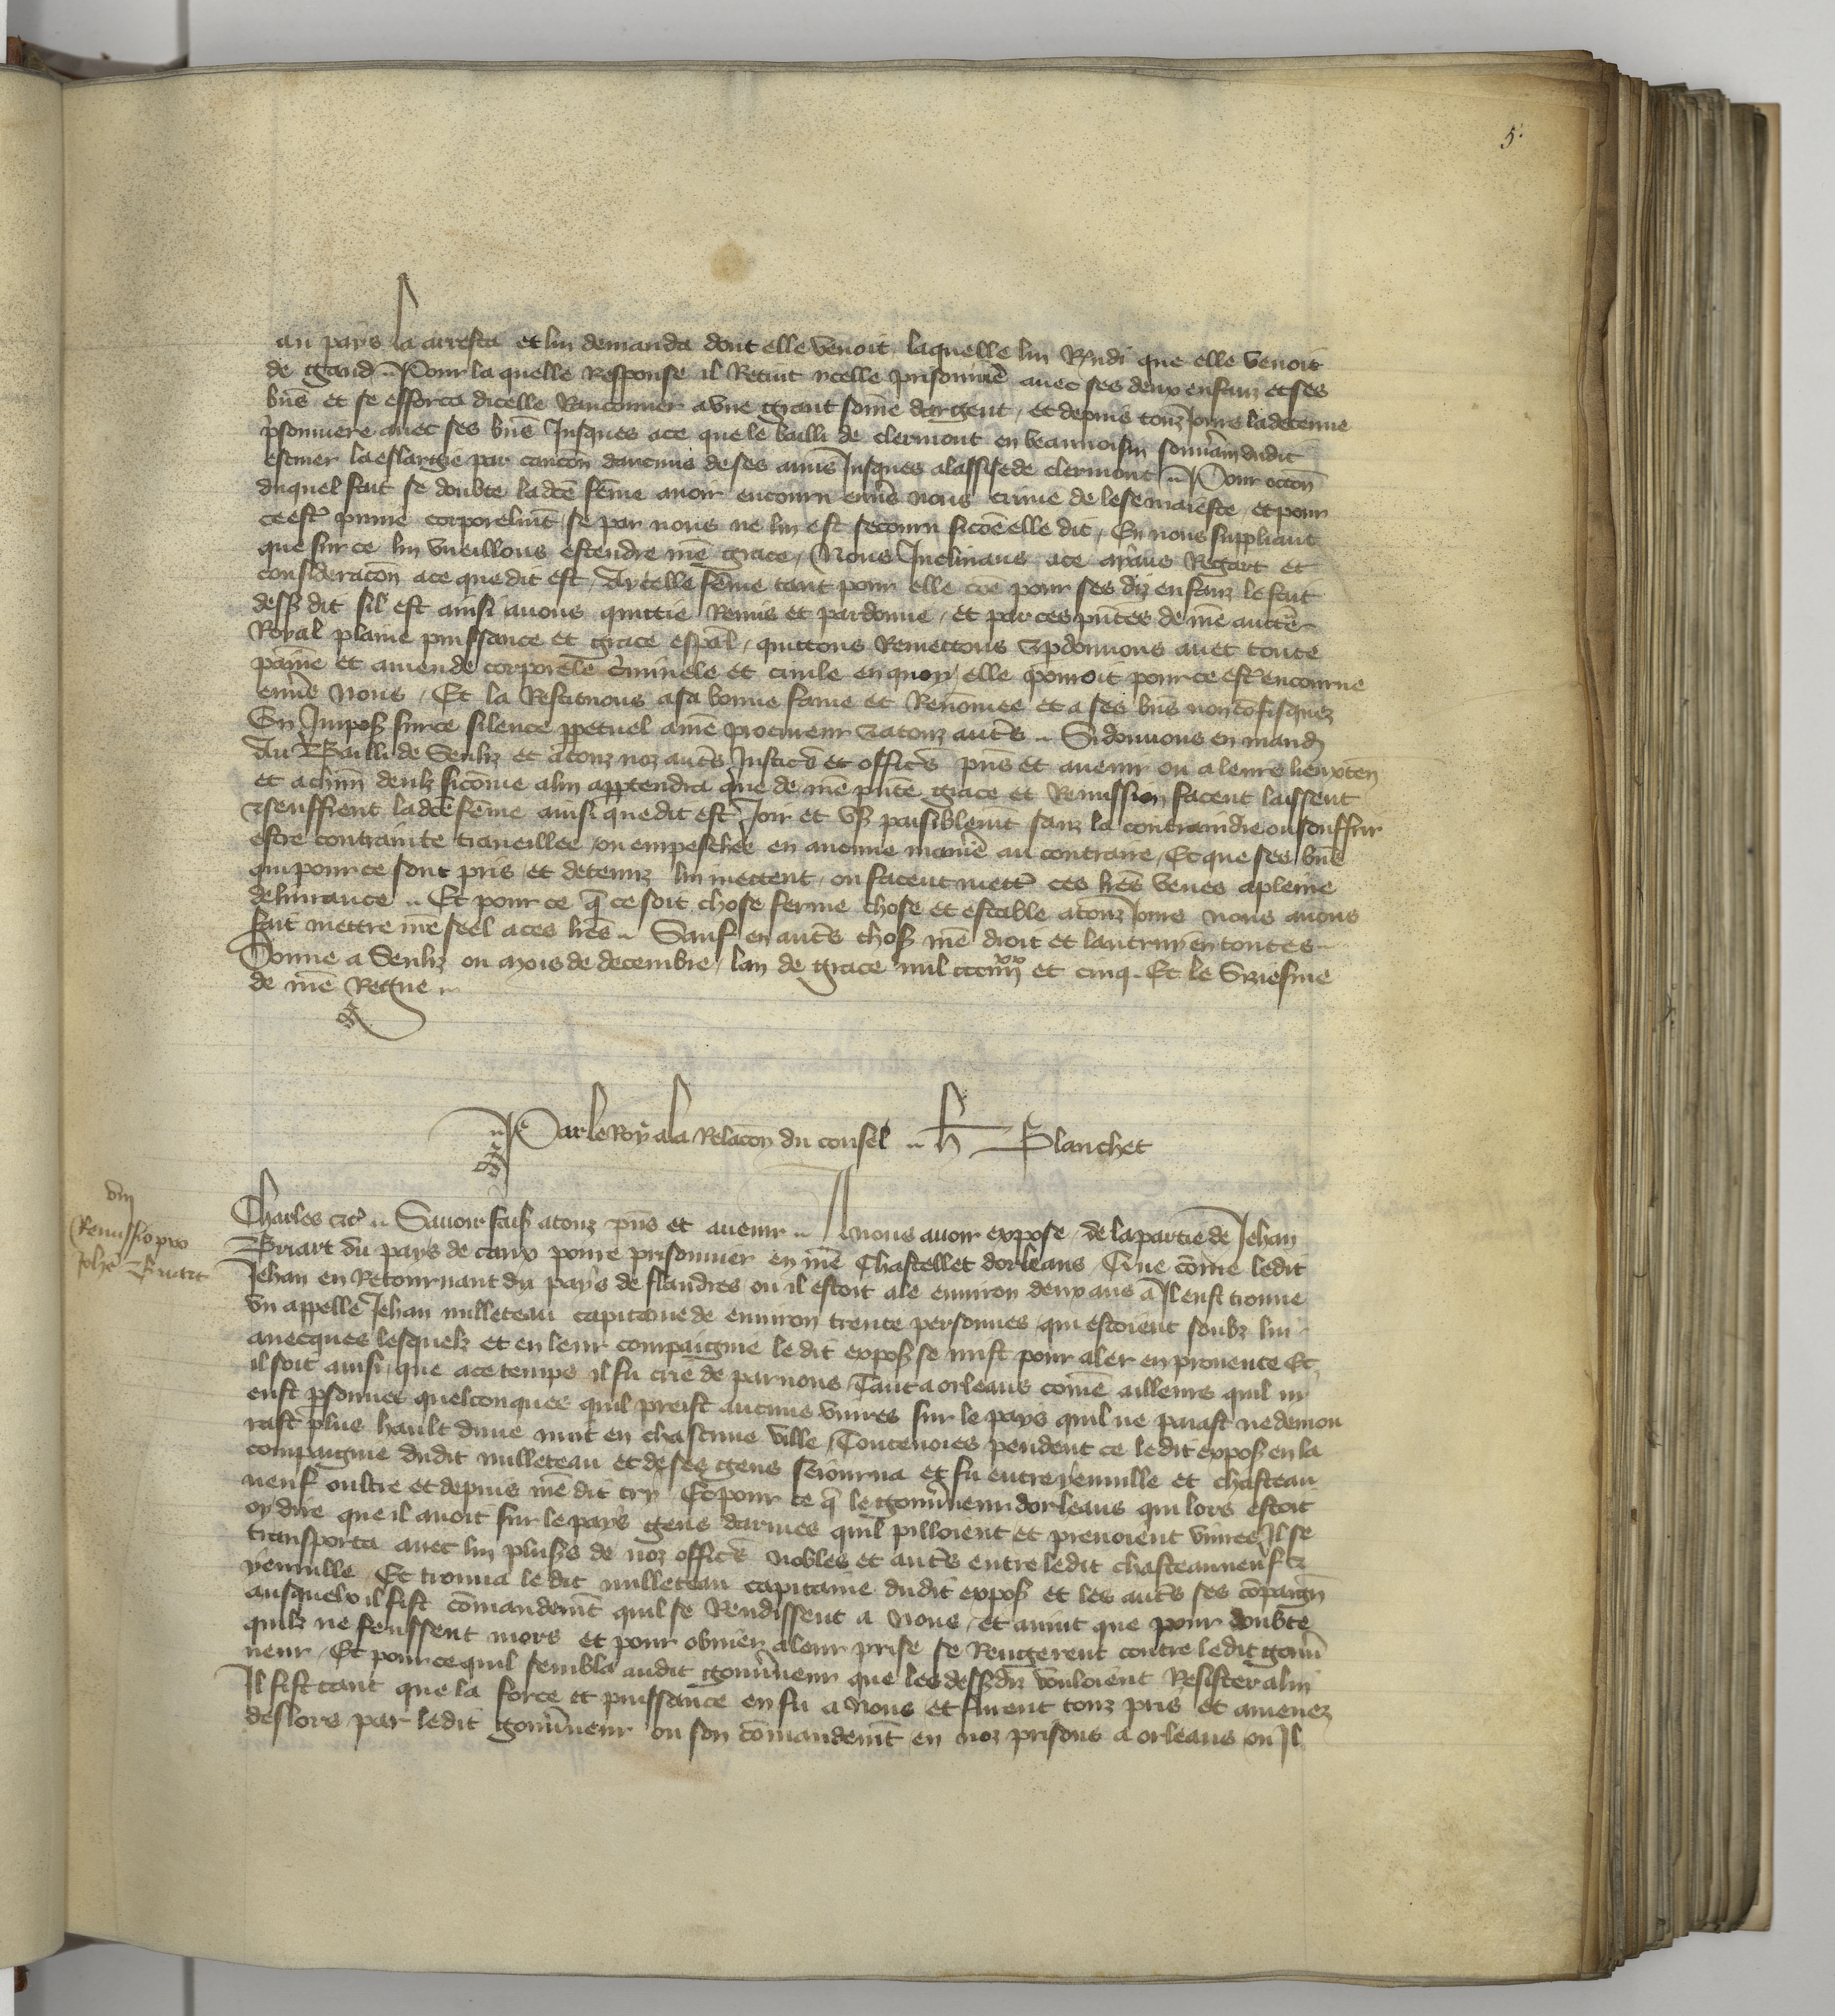 5
au pays la arresta et lui demanda dont elle venoit laquelle lui Rñdi que elle venoit
de gand Pour la quelle Response il Retint ycelle prisonniẽ avec ses deux enfanz et ses
biñs et se efforca dicelle Ranconner a une grant sõme dargent / et depuis touz Jours la detenue
p̃sonniere avec ses biñs Jusques a ce que le bailli de clermont en beauvoisin souṽain dudit
escuier la eslargie par caucõn daucuns de ses amis Jusques a lassise de clermont Pour occõn
duquel fait se doubte ladcẽ fẽme avoir encouru enṽs nous crime de lese maieste / et pour
ce est̃ punie corporelmt̃ se par nous ne lui est secouru sicõe elle dit / En nous suppliant
que sur ce lui vueillons estendre nr̃e grace / Nous Inclinans a ce aỹans Regart et
consideracõn a ce que dit est / A ycelle fẽme tant pour elle cõe pour ses diz enfanz le fait
dess̃ dit sil est ainsi avons quittie Remis et pardonne / et par ces pñtes de nr̃e auctẽ
Royal plaine puissance et grace esp̃al / quittons Remettons & p̱donnons avec toute
paine et amende corporele c̃minele et civile en quoy elle pourroit pour ce est̃ encourue
enṽs Nous / Et la Restituons a sa bonne fame et Renõmee et a ses biñs non cõfisquez
En Impos̃ sur ce silence p̱petuel a nr̃e procureur & a touz aut̃s Si donnons en mand̃
Au Bailli de Senliz et a touz noz aut̃s Justic̃s et offic̃s pñs et avenir ou a leurs lieuxteñ
et a chũn deulz sicõme a lui appartendra que de nr̃e pñte grace et Remission facent laissent
& seuffrent ladcẽ fẽme ainsi que dit est Joir et us̃ paisiblemt̃ sanz la contraindre ou souffrir
estre contrainte traveillee ou empeschee en aucune maniẽ au contraire / Et que ses biñs
qui pour ce sont pris et detenuz lui mettent ou facent mett̃ ces lr̃es veues a pleine
delivrance Et pour ce q̃ ce soit chose ferme chose et estable a touz Jours nous avons
fait mettre nr̃e seel a ces lr̃es Sauf en aut̃s chos̃ nr̃e droit et lautruy en toutes
Donne a Senliz ou mois de decembre / lan de grace mil ccc iiii xx et cinq. Et le Siziesme
de nr̃e Regne
Par le Roy a la Relacõn du conseil H Blanchet
viii
Remissio pro
Johẽ Briart
Charles &c̃ Savoir fais̃ a touz pñs et avenir A nous avoir expose / de la partie de Jehan
Briart du pays de caux povre prisonnier en nr̃e Chastellet dorleans / Que cõme ledit
Jehan en Retournant du pays de flandres ou il estoit ale environ deux ans a Il eust trouve
un appelle Jehan milleteau capitaine de environ trente personnes qui estoient soubz lui
avecques lesquelz et en leur compaignie le dit expos̃ se mist pour aler en provence Et
il soit ainsi que a ce temps il fu crie de par nous / Tant a orleans com̃e ailleurs quil ny
eust p̱sonnes quelconques quil preist aucuns vivres sur le pays quil ne paiast ne demou
rast plus hault dune nuit en chascune ville / Toutevoies pendent ce ledit expos̃ en la
compaignie dudit milleteau et de ses gens seiourna et fu entre yenville et chasteau
neuf oultre et depuis nr̃e dit cry Et pour ce q̃ le gouṽneur dorleans qui lors estoit
oy dire que il avoit sur le pays gens darmes quil pilloient et prenoient vivres Il se
transporta avec lui plus̃s de noz offic̃s nobles et aut̃s entre ledit chasteauneuf &
yenville / Et trouva le dit milleteau capitaine dudit expos̃ et les aut̃s ses cõpaigñ
ausquelx il fist cõmandemt̃ quil se Rendissent a Nous / et avint que pour doubte
quilz ne feussent mors et pour obvier a leur prise se Rengerent contre ledit gouṽ
neur / Et pour ce quil sembla audit gouṽneur que les dess̃diz vouloient Resister a lui
Il fist tant que la force et puissance en fu a Nous et furent touz pris et amenez
deslors par ledit gouṽneur ou son cõmandemt̃ en noz prisons a orleans ou Il